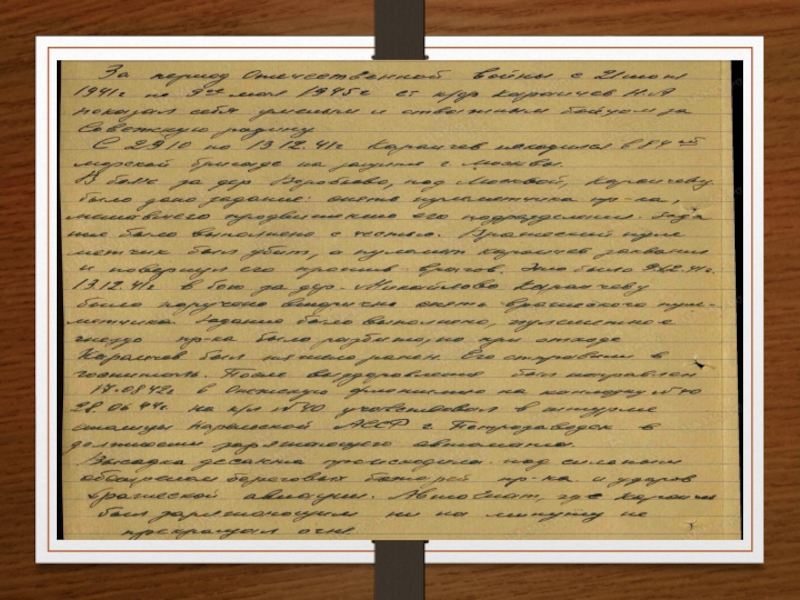 За период Отечественной войны с 21 июня
1941г по 9ое мая 1945г ст к/др Карачев Н.А
показал себя умелым и отважным бойцом за
Советскую родину
С 29 10 по 13.12.41г Карачев находился в 84ой
морской бригаде на защите г. Москвы.
В боях за дер Воробьево, под Москвой, Карачеву
было дано задание: снять пулеметчика пр-ка,
мешавшего продвижению его подразделения. Зада
ние было выполнено с честью. Вражеский пуле
метчик был убит, а пулемет Карачев захватил
и повернул его против врагов. Это было 9.12.41г.
13.12.41г. в бою за дер. Михайлово Карачеву
было поручено вторично снять вражеского пуле-
метчика. Задание было выполнено, пулеметное
гнездо пр-ка было разбито, но при отходе
Карачев был тяжело ранен. Его отправили в
госпиталь. После выздоровления был направлен
17.08.42г в Онежскую флотилию на канлодку №40
28.06.44г. на к/л №40 участвовал в штурме
столицы Карельской АССР г Петрозаводск в
должности заряжающего автомата.
Высадка десанта происходила под сильным
обстрелом береговых батарей пр-ка и ударов
вражеской авиации. Автомат, где Карачев
был заряжающим ни на минуту не
прекращал огня